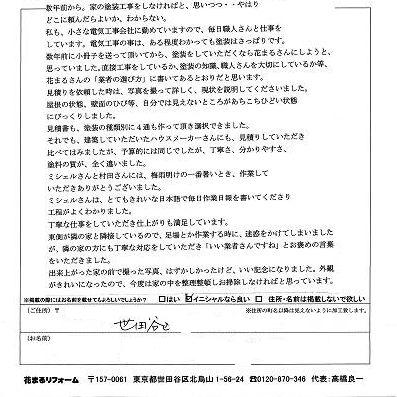 数年前から、家の塗装工事をしなければと、思いつつ・・やはり
どこに頼んだらよいか、わからない。
私も、小さな電気工事会社に勤めていますので、毎日職人さんと仕事を
しています。電気工事の事は、ある程度わかっても塗装はさっぱりです。
数年前に小冊子を送って頂いてから、塗装をしていただくなら花まるさんにしようと、
思っていました。直接工事をしているか、塗装の知識、職人さんを大切にしているか等、
花まるさんの「業者の選び方」に書いてあるとおりだと思います。
見積りを依頼した時は、写真を撮って詳しく、現状を説明してくださいました。
屋根の状態、壁面のひび等、自分では見えないところがあちこちひどい状態
にびっくりしました。
見積書も、塗装の種類別に4通も作って頂き選択できました。
それでも、建築していただいたハウスメーカーさんにも、見積りしていただき
比べてはみましたが、予算的には同じでしたが、丁寧さ、分かりやすさ、
塗料の質が、全く違いました。
ミシェルさんと村田さんには、梅雨明けの一番暑いとき、作業して
いただきありがとうございました。
ミシェルさんは、とてもきれいな日本語で毎日作業日報を書いてくださり
工程がよくわかりました。
丁寧な仕事をしていただき仕上がりも満足しています。
東側が隣の家と隣接しているので、足場とか作業する時に、迷惑をかけてしまいました
が、隣の家の方にも丁寧な対応をしていただき「いい業者さんですね」とお褒めの言葉
をいただきました。
出来上がった家の前で撮った写真、はずかしかったけど、いい記念になりました。外観
がきれいになったので、今度は家の中を整理整頓しお掃除しなければと思っています。
※掲載の際にはお名前を載せてもよろしいでしょうか? □はい ☑イニシャルなら良い □住所・名前は掲載しないで欲しい
(ご住所) 〒 ※住所の町名以降は見えないように加工致します。
世田谷区
(お名前)
花まるリフォーム 〒157-0061 東京都世田谷区北烏山1-56-24 ☎0120-870-346 代表:高橋良一